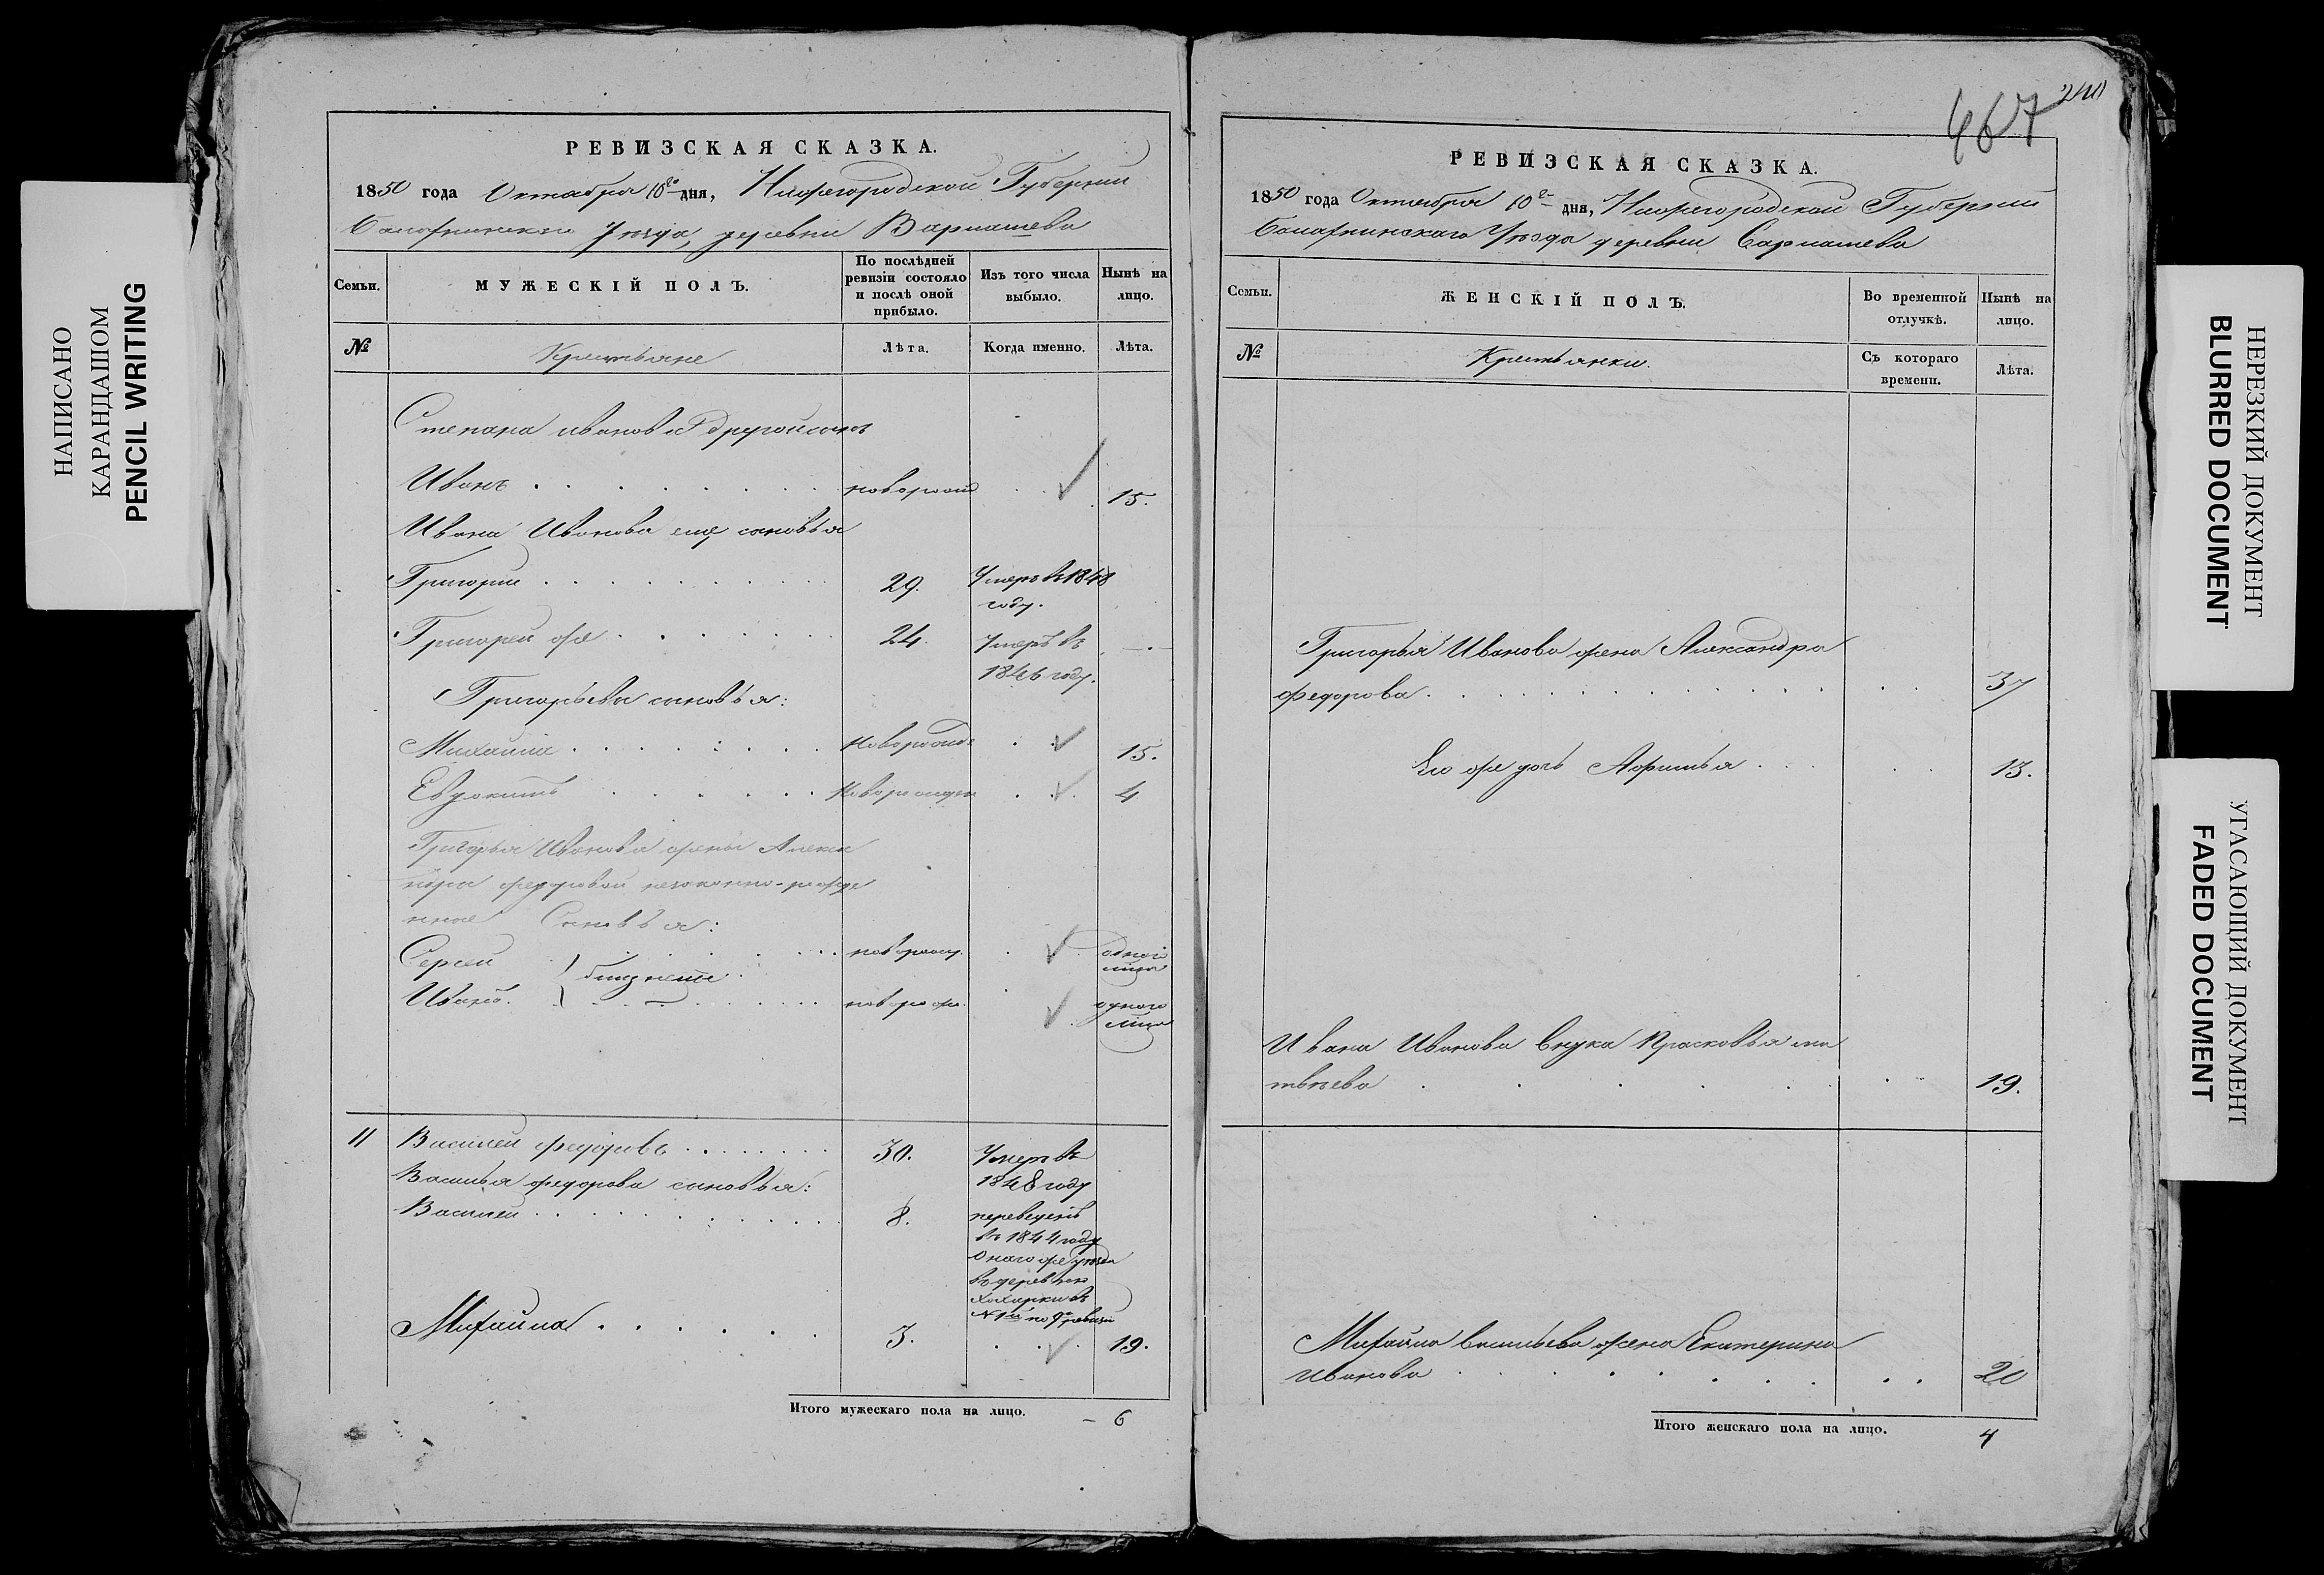 НАПИСАНО
КАРАНДАШОМ
PENCIL WRITING
РЕВИЗСКАЯ СКАЗКА.
1850 года Октября 10го дня, Нижегородской Губернии
Балахнинскаго Уезда, деревни Варнашева
Семьи.
МУЖЕСКІЙ ПОЛЪ.
По послѣдней ревизіи состояло и послѣ оной прибыло.
Изъ того числа выбыло.
Нынѣ на лицо.
№
Крестьяне
Лѣта.
Когда именно.
Лѣта.
Степана Иванова другой сынъ
Иванъ новорожд 15.
Ивана Иванова еще сыновья
Григорий 29. Умеръ в 1848
году.
Григорей же 24. Умеръ въ
1846 году.
Григорьева сыновья:
Михайла новорожд 15.
Евдокимъ новорожден 4
Григорья Иванова жены Алекса
ндры Федоровой незаконно-рожде
нные Сыновья:
Сергей новорожд. одного
близнецы
Иванъ. новорож. одного
11 Василей Федоровъ 30. Умеръ въ
1848 году
Василья Федорова сыновья:
Василей 8. переведенъ
въ 1844 году
оного же уезда
въ деревню
№ 1й по 9й ревизии
Михайла 3. 19.
Итого мужескаго пола на лицо. — 6
467
240
РЕВИЗСКАЯ СКАЗКА.
1850 года Октября 10го дня, Нижегородской Губернии
Балахнинскаго Уезда деревни Варнашева
Семьи.
ЖЕНСКІЙ ПОЛЪ.
Во временной отлучкѣ.
Нынѣ на лицо.
№
Крестьянки.
Съ котораго времени.
Лѣта.
Григорья Иванова жена Александра
Федорова 37
Его же дочь Афимья 13.
Ивана Иванова внука Прасковья Ма
твеева 19.
Михайла Васильева жена Екатерина
Иванова 20
Итого женскаго пола на лицо. 4
НЕРЕЗКИЙ ДОКУМЕНТ
BLURRED DOCUMENT
УГАСАЮЩИЙ ДОКУМЕНТ
FADED DOCUMENT